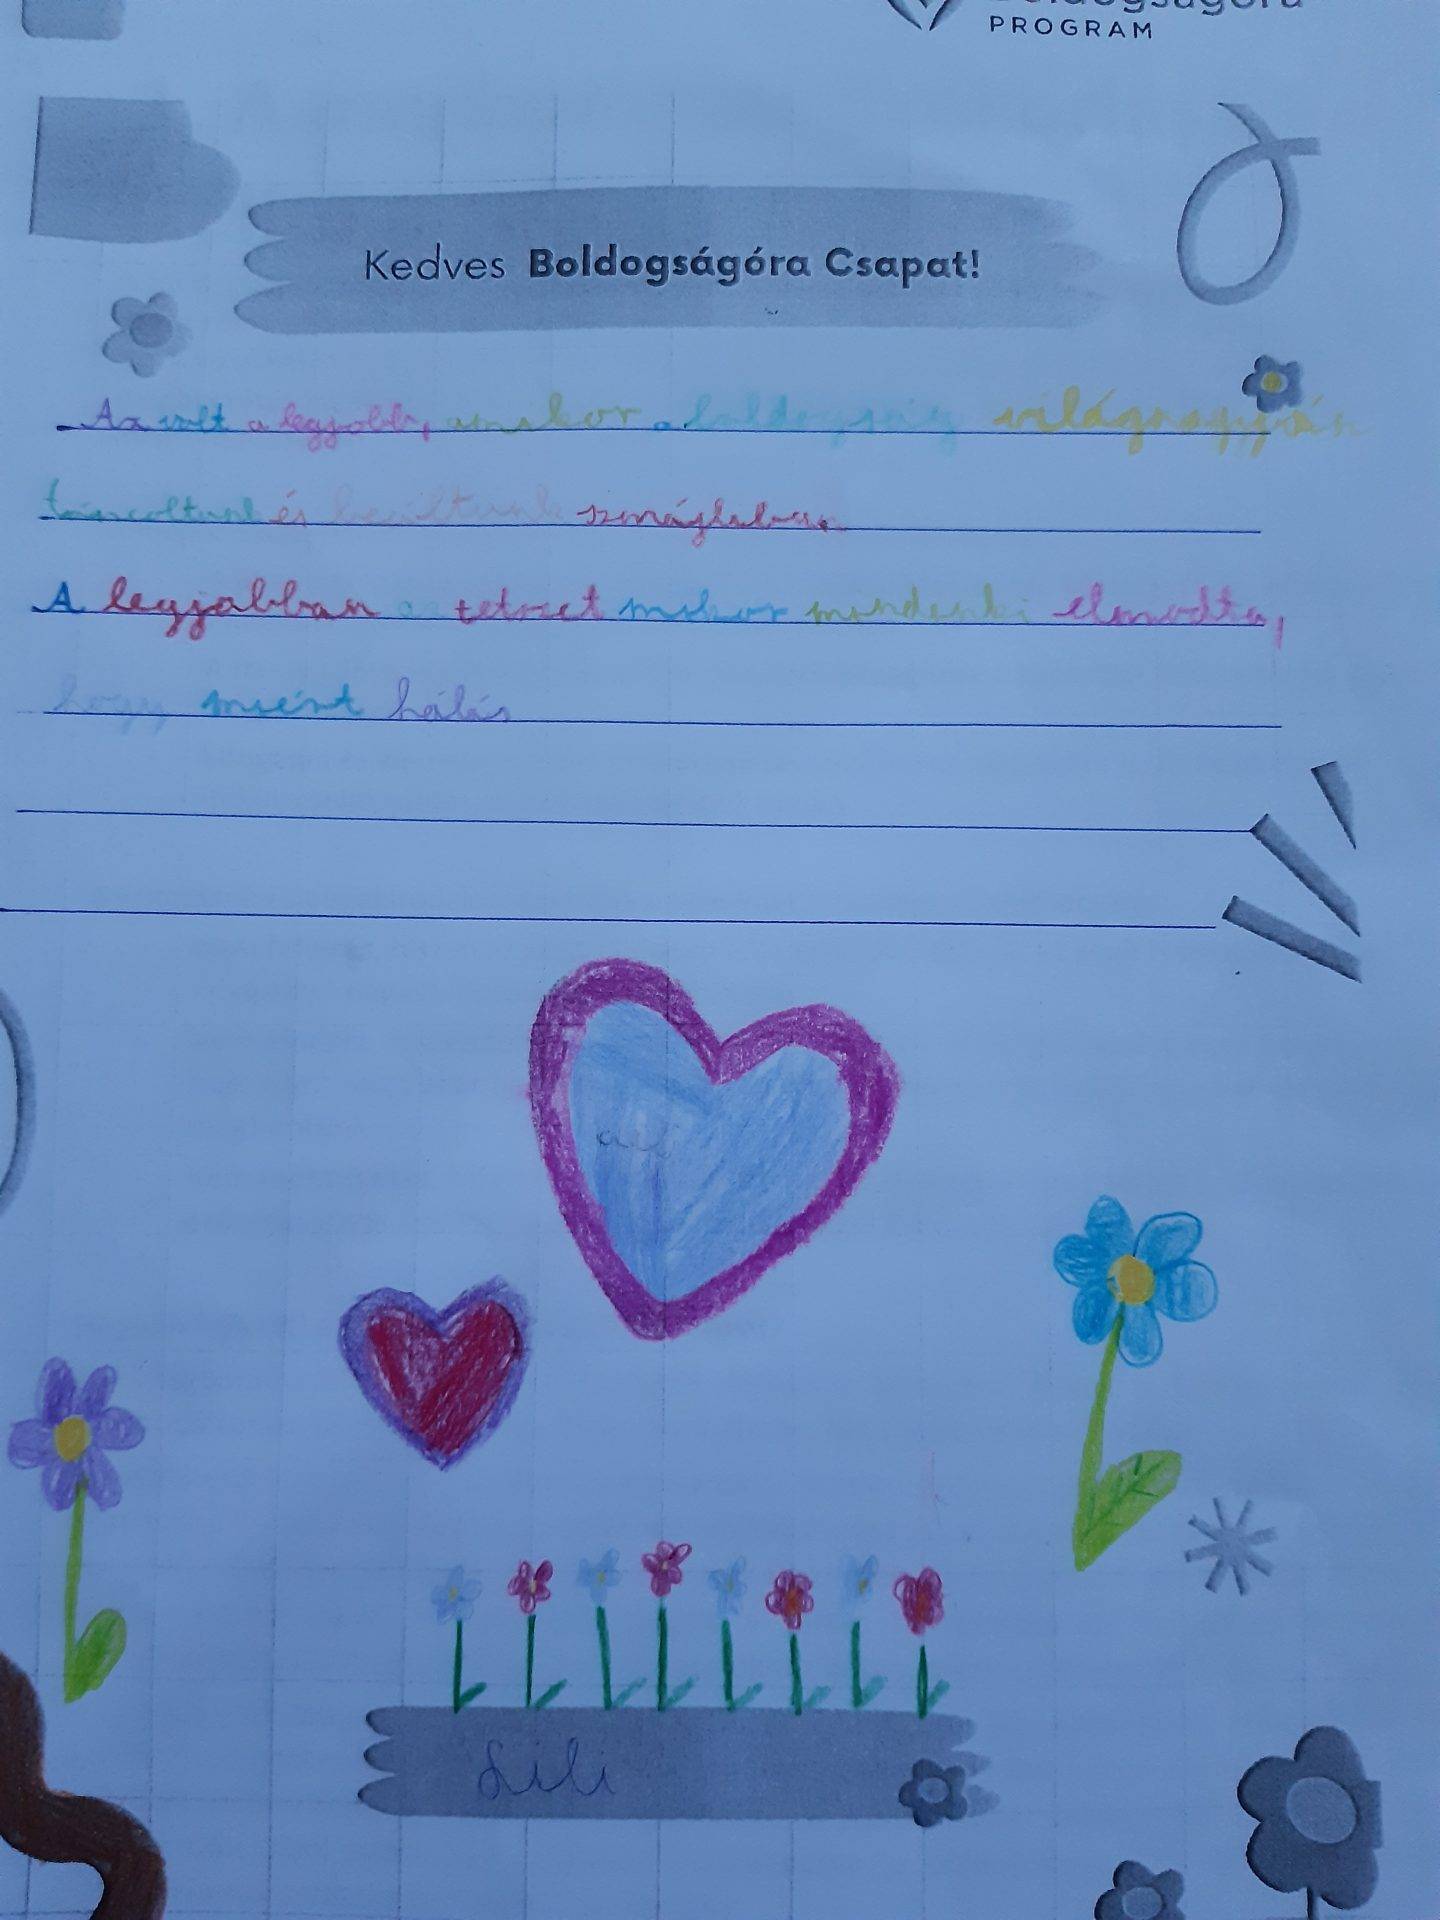 Boldogságóra
PROGRAM
Kedves Boldogságóra Csapat!
Az volt a legjobb, amikor a boldogság világnapján
táncoltunk és beültunk szmájliban
A legjobban az tetszet mikor mindenki elmodta,
hogy miért hálás
Lili